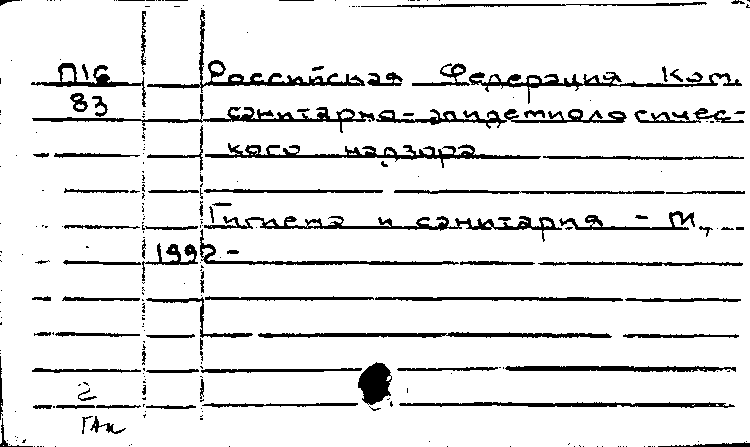 П16 Российская Федерация. Ком.
83 санитарно-эпидемиологичес-
кого надзора
Гигиена и санитария - М.,
1992-
2